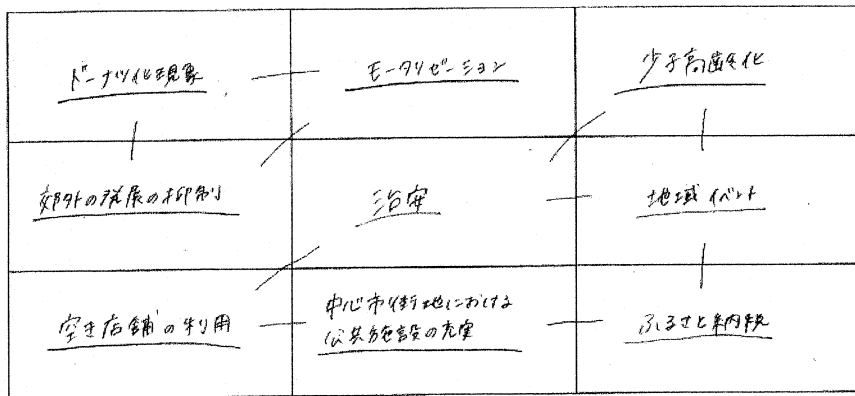 ドーナツ化現象
モータリゼーション
少子高齢化
郊外の発展の抑制
治安
地域イベント
空き店舗の利用
中心市街地における
公共施設の充実
ふるさと納税